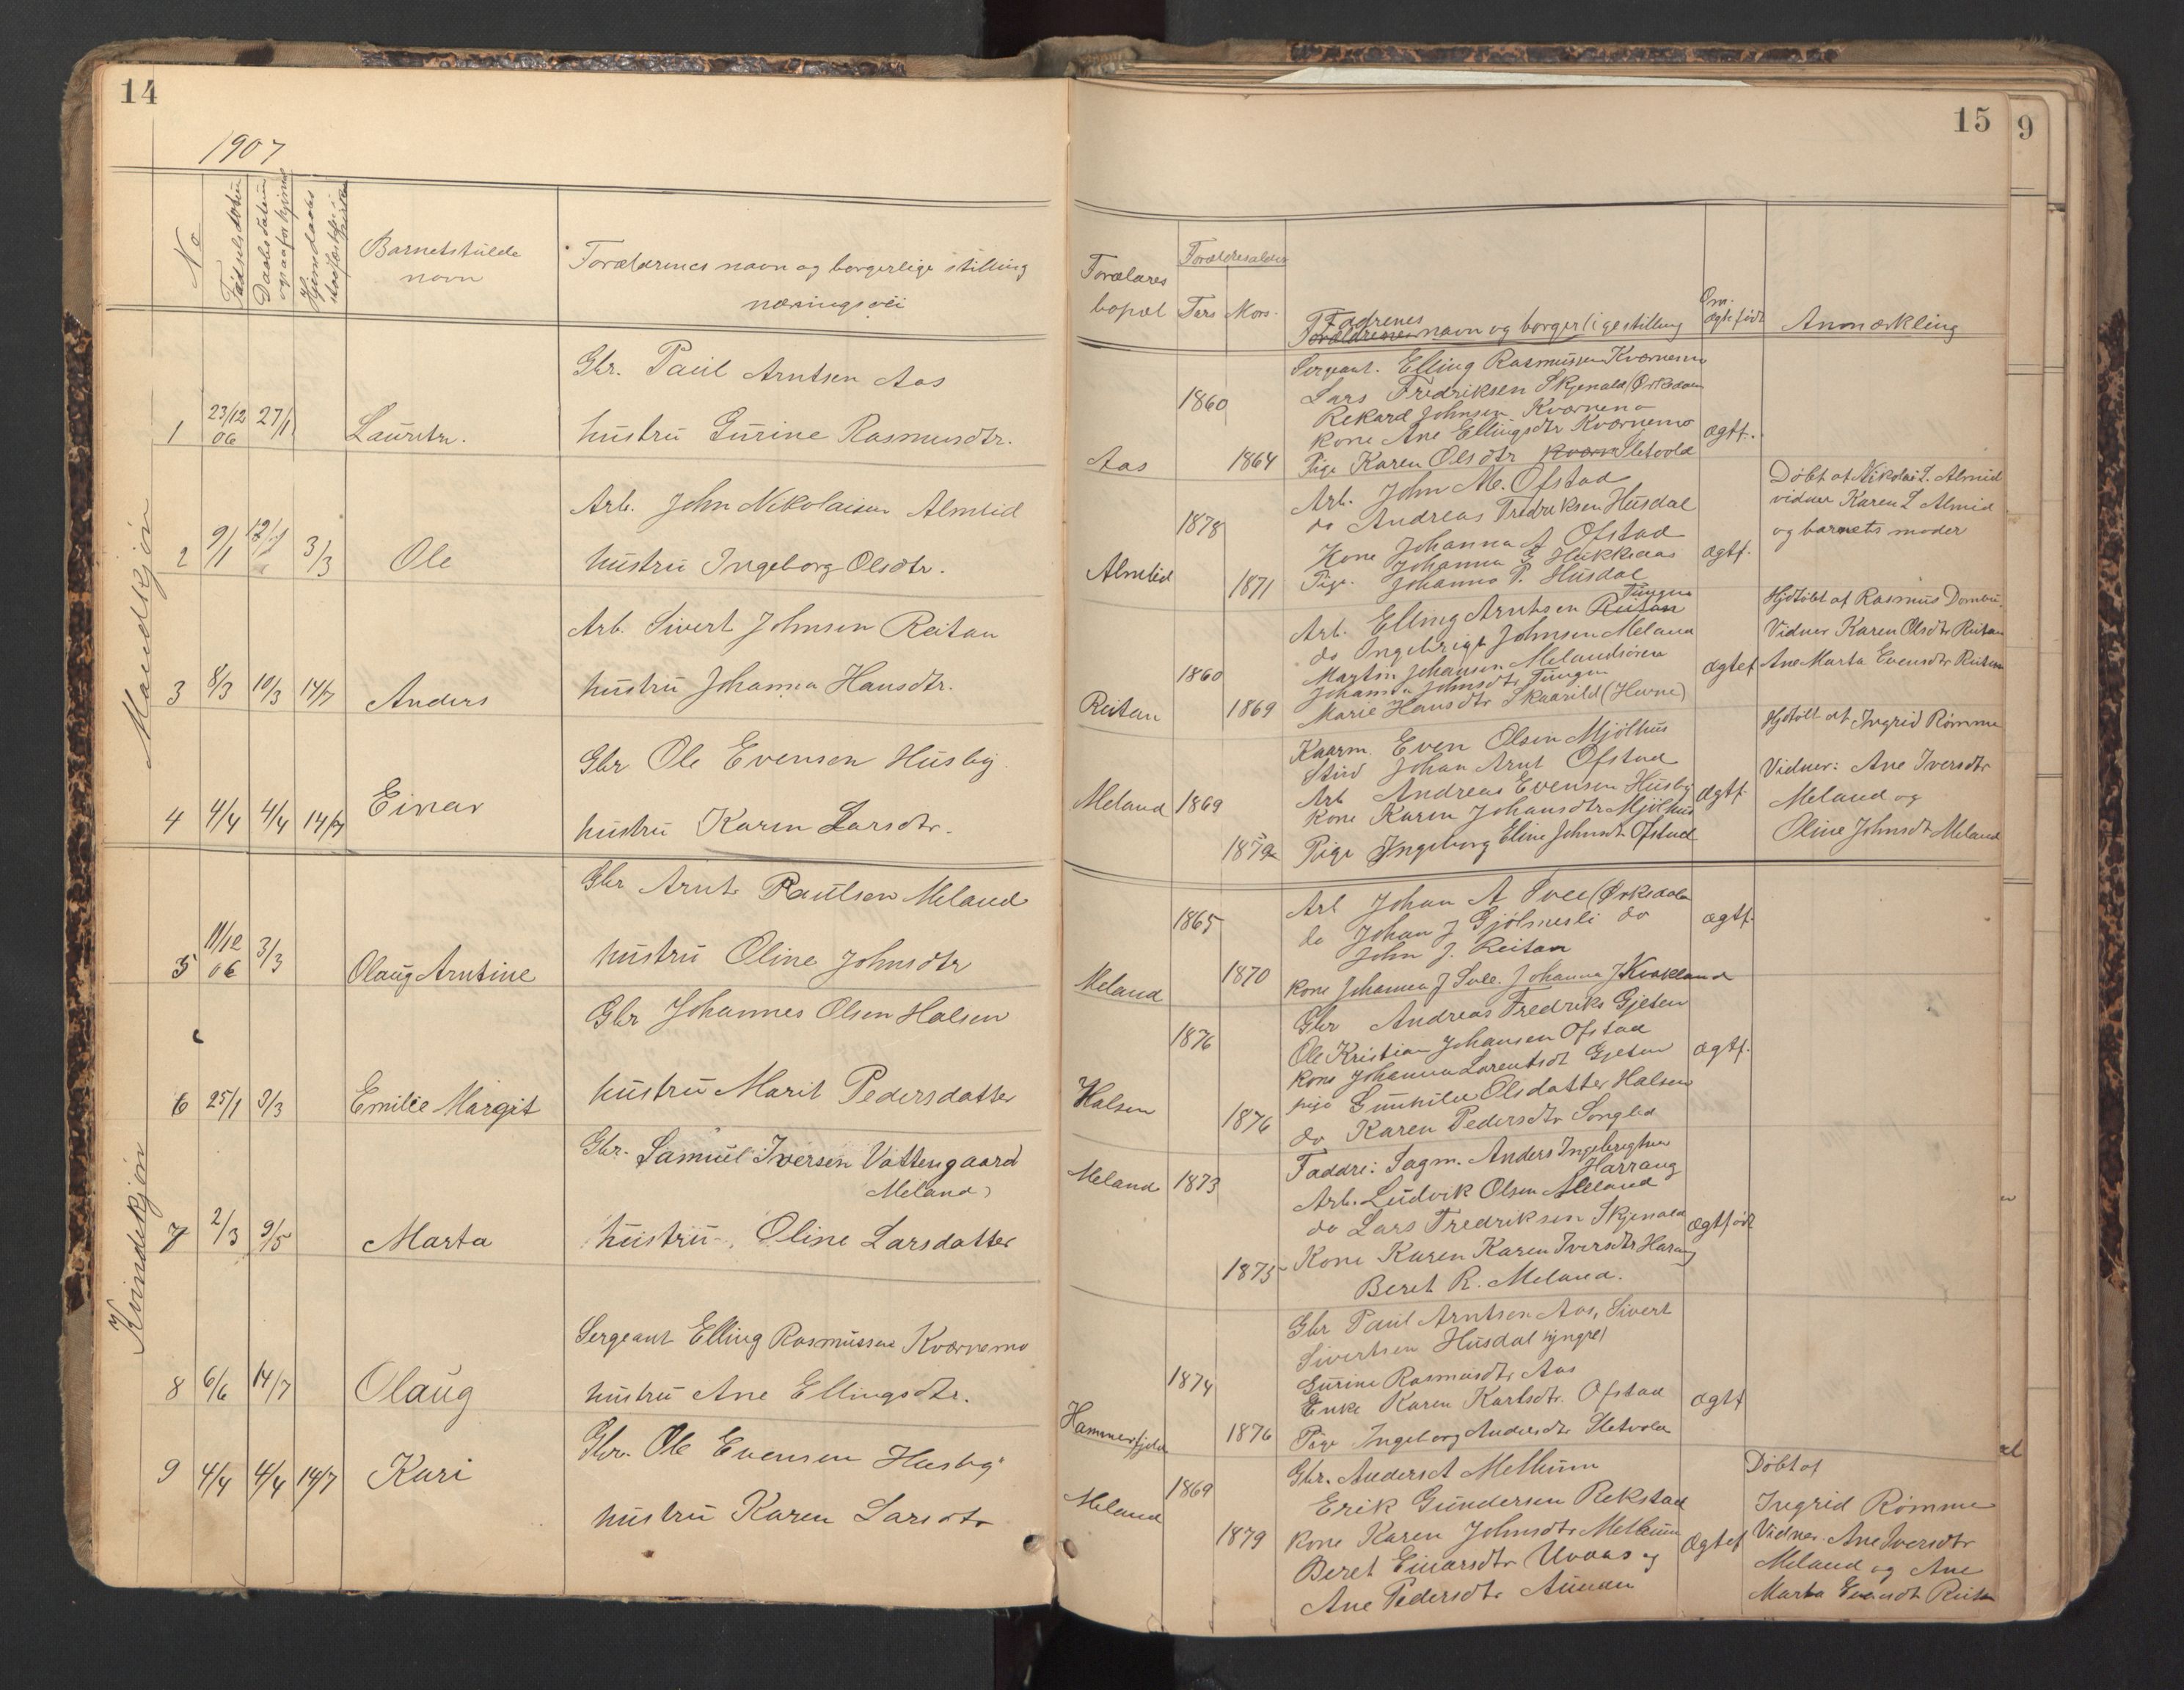 14
1907
No
Fødselsdatum
Daabsdatum
Hjemdaabs
Barnets fulde
navn
Forældrenes navn og borgerlige stilling
næringsvei
Mandkjøn
Gbr. Paul Arntsen Aas
1 23/12 06 27/1 Lauritz.
hustru Gurine Rasmusdtr.
Arb. John Nikolaisen Almlid
2 9/1 3/3 Ole
hustru Ingeborg Olsdtr.
Arb. Sivert Johnsen Reitan
3 8/3 10/3 14/7 Anders
hustru Johanna Hansdtr.
Gbr Ole Evensen Husby
4 4/4 4/4 14/7 Einar
hustru Karen Larsdtr.
Kvindekjøn
Gbr Arnt Paulsen Meland
5 11/12 06 3/3 Olaug Arntine
hustru Oline Johnsdtr
Gbr Johannes Olsen Halsen
6 25/1 3/3 Emilie Margit
hustru Marit Pedersdatter
Gbr. Samuel Iversen Vattengaard
Meland
7 2/3 9/5 Marta
hustru Oline Larsdatter
Sergeant Elling Rasmussen Kværnemo
8 6/6 14/7 Olaug
hustru Ane Ellingsdtr.
Gbr. Ole Evensen Husby
9 4/4 4/4 14/7 Kari
hustru Karen Larsdtr
15
9
Forældres
bopæl
Forældresalder
Fars Mors
Fadrenes
Forældrenes navn og borgerlige stilling
Om
ægte født
Anmærkling
Sergeant. Elling Rasmussen Kværnemo
1860 Lars Fredriksen Skjenald (Orkedalen
Rekard Johnsen Kværnemo
kone Ane Ellingsdtr Kværnemo ægtf.
Aas 1864 Pige Karen Olsdtr Kværn Sletvold
Arb. John M. Ofstad
1878 do Andreas Fredriksen Husdal
Kone Johanna A Ofstad
Almlid Pige. Johanna E Hukkelaas ægtf.
1871 Johanna P. Husdal
Døbt af Nikolai L. Almlid
vidner Karen L Almlid
og barnets moder
Tungen
Arb. Elling Arntsen Reitan
do Ingebrigt Johnsen Meland
1860 Martin Johansen Melandsøren ægtef
Johanna Johnsdtr Tungen
Reitan 1869 Marie Hansdtr Skaarild (Hevne)
Hjdøbt af Rasmus Dombu.
Vidner Karen Olsdtr Reitan
Ane Marta Evensdtr Reitan
Kaarm. Even Olsen Mjølhus
Stud Johan Arnt Ofstad
Meland 1869 Arb Andreas Evensen Husby ægtf.
Kone Karen Johansdtr Mjølhus
1879 Pige Ingeborg Eline Johnsdt Ofstad
Hjdøbt af Ingrid Rømme
Vidner: Ane Iversdtr
Meland og
Oline Johnsdt Meland
1865 Arb Johan A Tvee (Orkedalen ægtf.
do Johan J Gjølmesli do
John J. Reitan
Meland 1870 kone Johanna J Johanna J Kvakland
Gbr Andreas Fredriks Gjeten
1876 Ole Kristian Johansen Ofstad
kone Johanna Lorentsdt Gjeten ægtf.
Halsen pige Gunhild Olsdatter Halsen
1876 do Karen Pedersdtr Songlid
Faddre: Sagm. Anders Ingebrigtsen
Harrang
Meland 1873 Arb. Ludvik Olsen Meland
do Lars Fredriksen Skjenald ægtfødt
1875 Kone Karen Karen Iversdtr Harang
Beret R. Meland.
Gbr Paul Arntsen Aas, Sivert
Sivertsen Husdal (yngre)
1874 Gurine Rasmusdtr Aas
Enke Karen Karlsdtr. Ofstad ægtf
Hammerfjeld 1876 Pige Ingeborg Andersdtr Sletvold
1869 Gbr. Anders A Melhum
Meland Erik Gundersen Rekstad
1879 kone Karen Johnsdtr Melhum ægtef
Beret Einarsdtr Uvaas og
Ane Pedersdtr Aunden
Døbt af
Ingrid Rømme
Vidner. Ane Iversdtr
Meland og Ane
Marta Evensdt Reitan